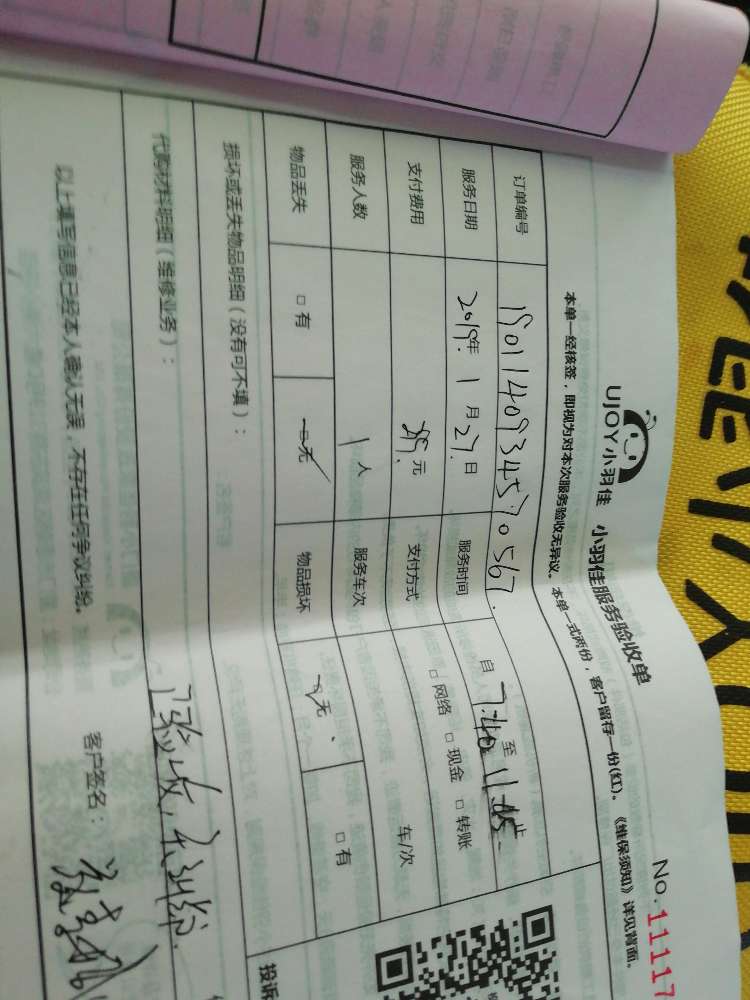 UJOY小羽佳 小羽佳服务验收单
No.11117
本单一经核签，即视为对本次服务验收无异议。本单一式两份，客户留存一份(红)。《维保须知》详见背面。
订单编号 1901140934570567
服务日期 2019年1月27日 服务时间 自7:40至11:45止
支付费用 元 支付方式 □网络 □现金 □转账
服务人数 1人 服务车次 车/次
物品丢失 □有 □无 物品损坏 □无 □有
损坏或丢失物品明细（没有可不填）：
代购材料明细（维修业务）：
已验收，无纠纷
以上填写信息已经本人确认无误，不存在任何争议纠纷。 客户签名：
投诉